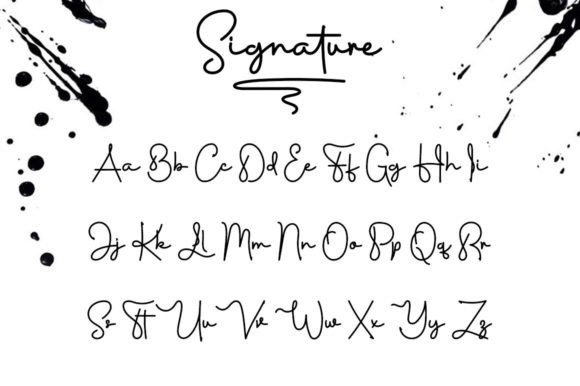 Signature
Aa Bb Cc Dd Ee Ff Gg Hh Ii
Jj Kk Ll Mm Nn Oo Pp Qq Rr
Ss Tt Uu Vv Ww Xx Yy Zz